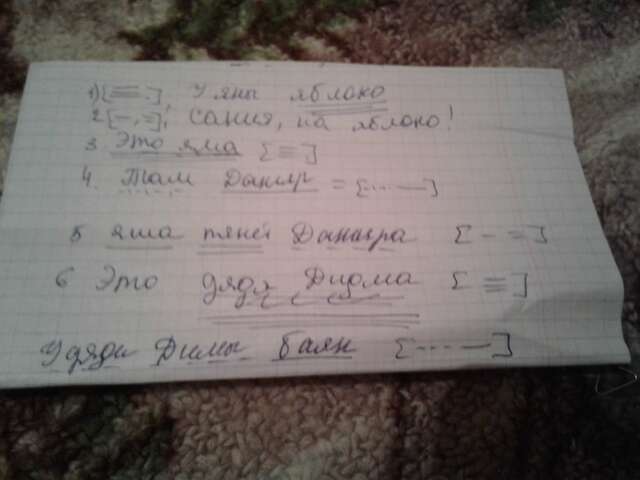 1) [≡.], У яны яблоко
2 [–,=], Сания, на яблоко!
3 Это яма [≡]
4. Там Данияр = [... —]
5 яша тянет Данияра [– =]
6 Это дядя Дидма [≡]
У дяди Димы баян [... —]